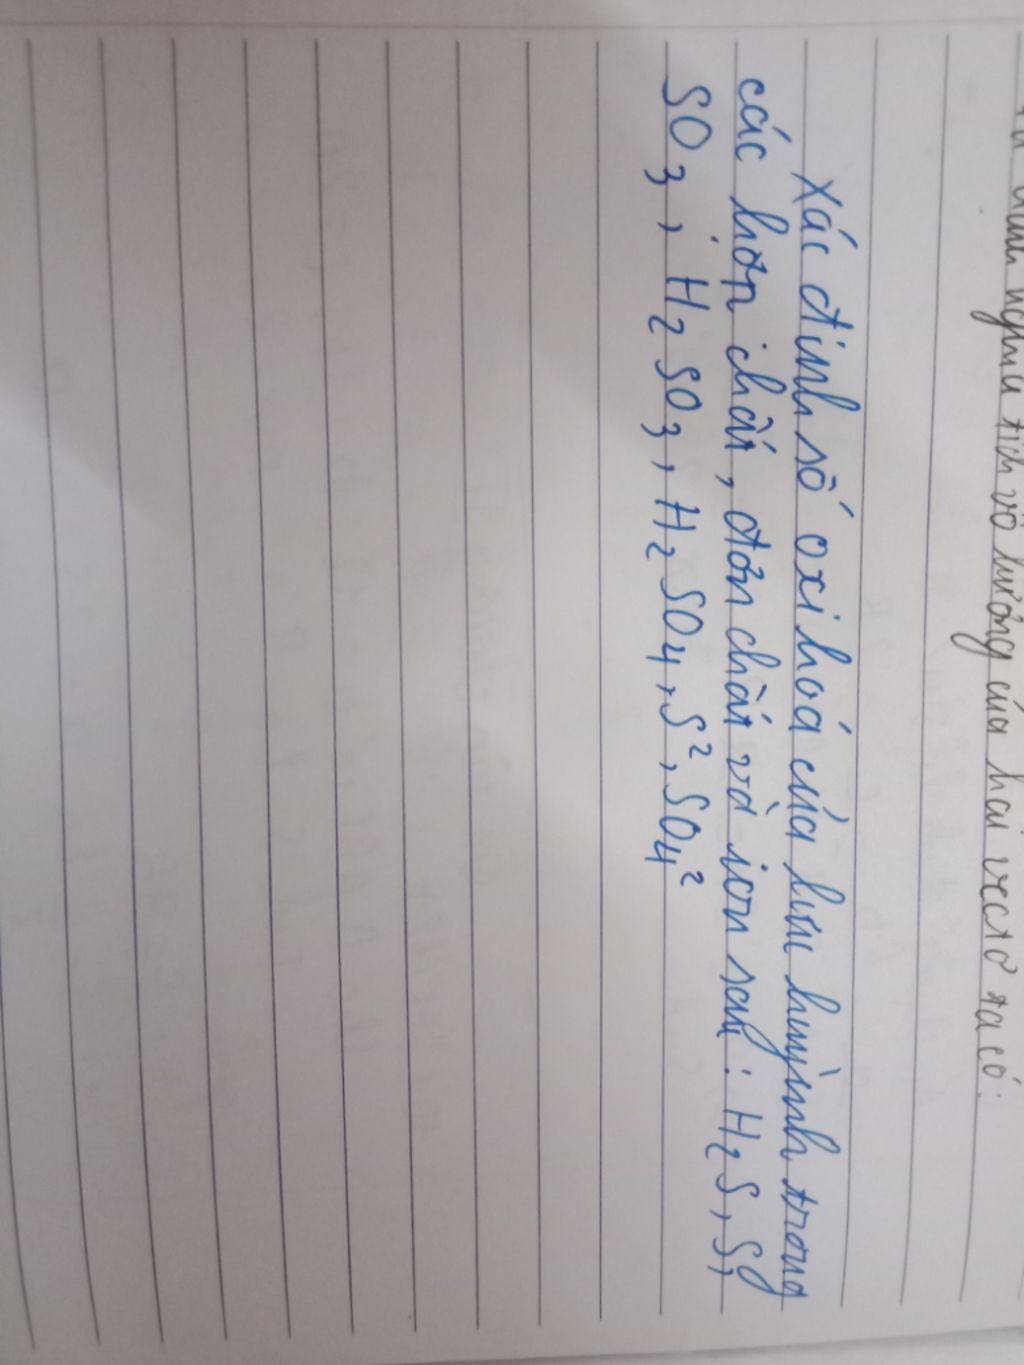 định nghĩa tích vô hướng của hai vectơ ta có:
Xác định số oxi hoá của lưu huỳnh trong
các hợp chất, đơn chất và ion sau: H₂S, S,
SO₃, H₂SO₃, H₂SO₄, S², SO₄²